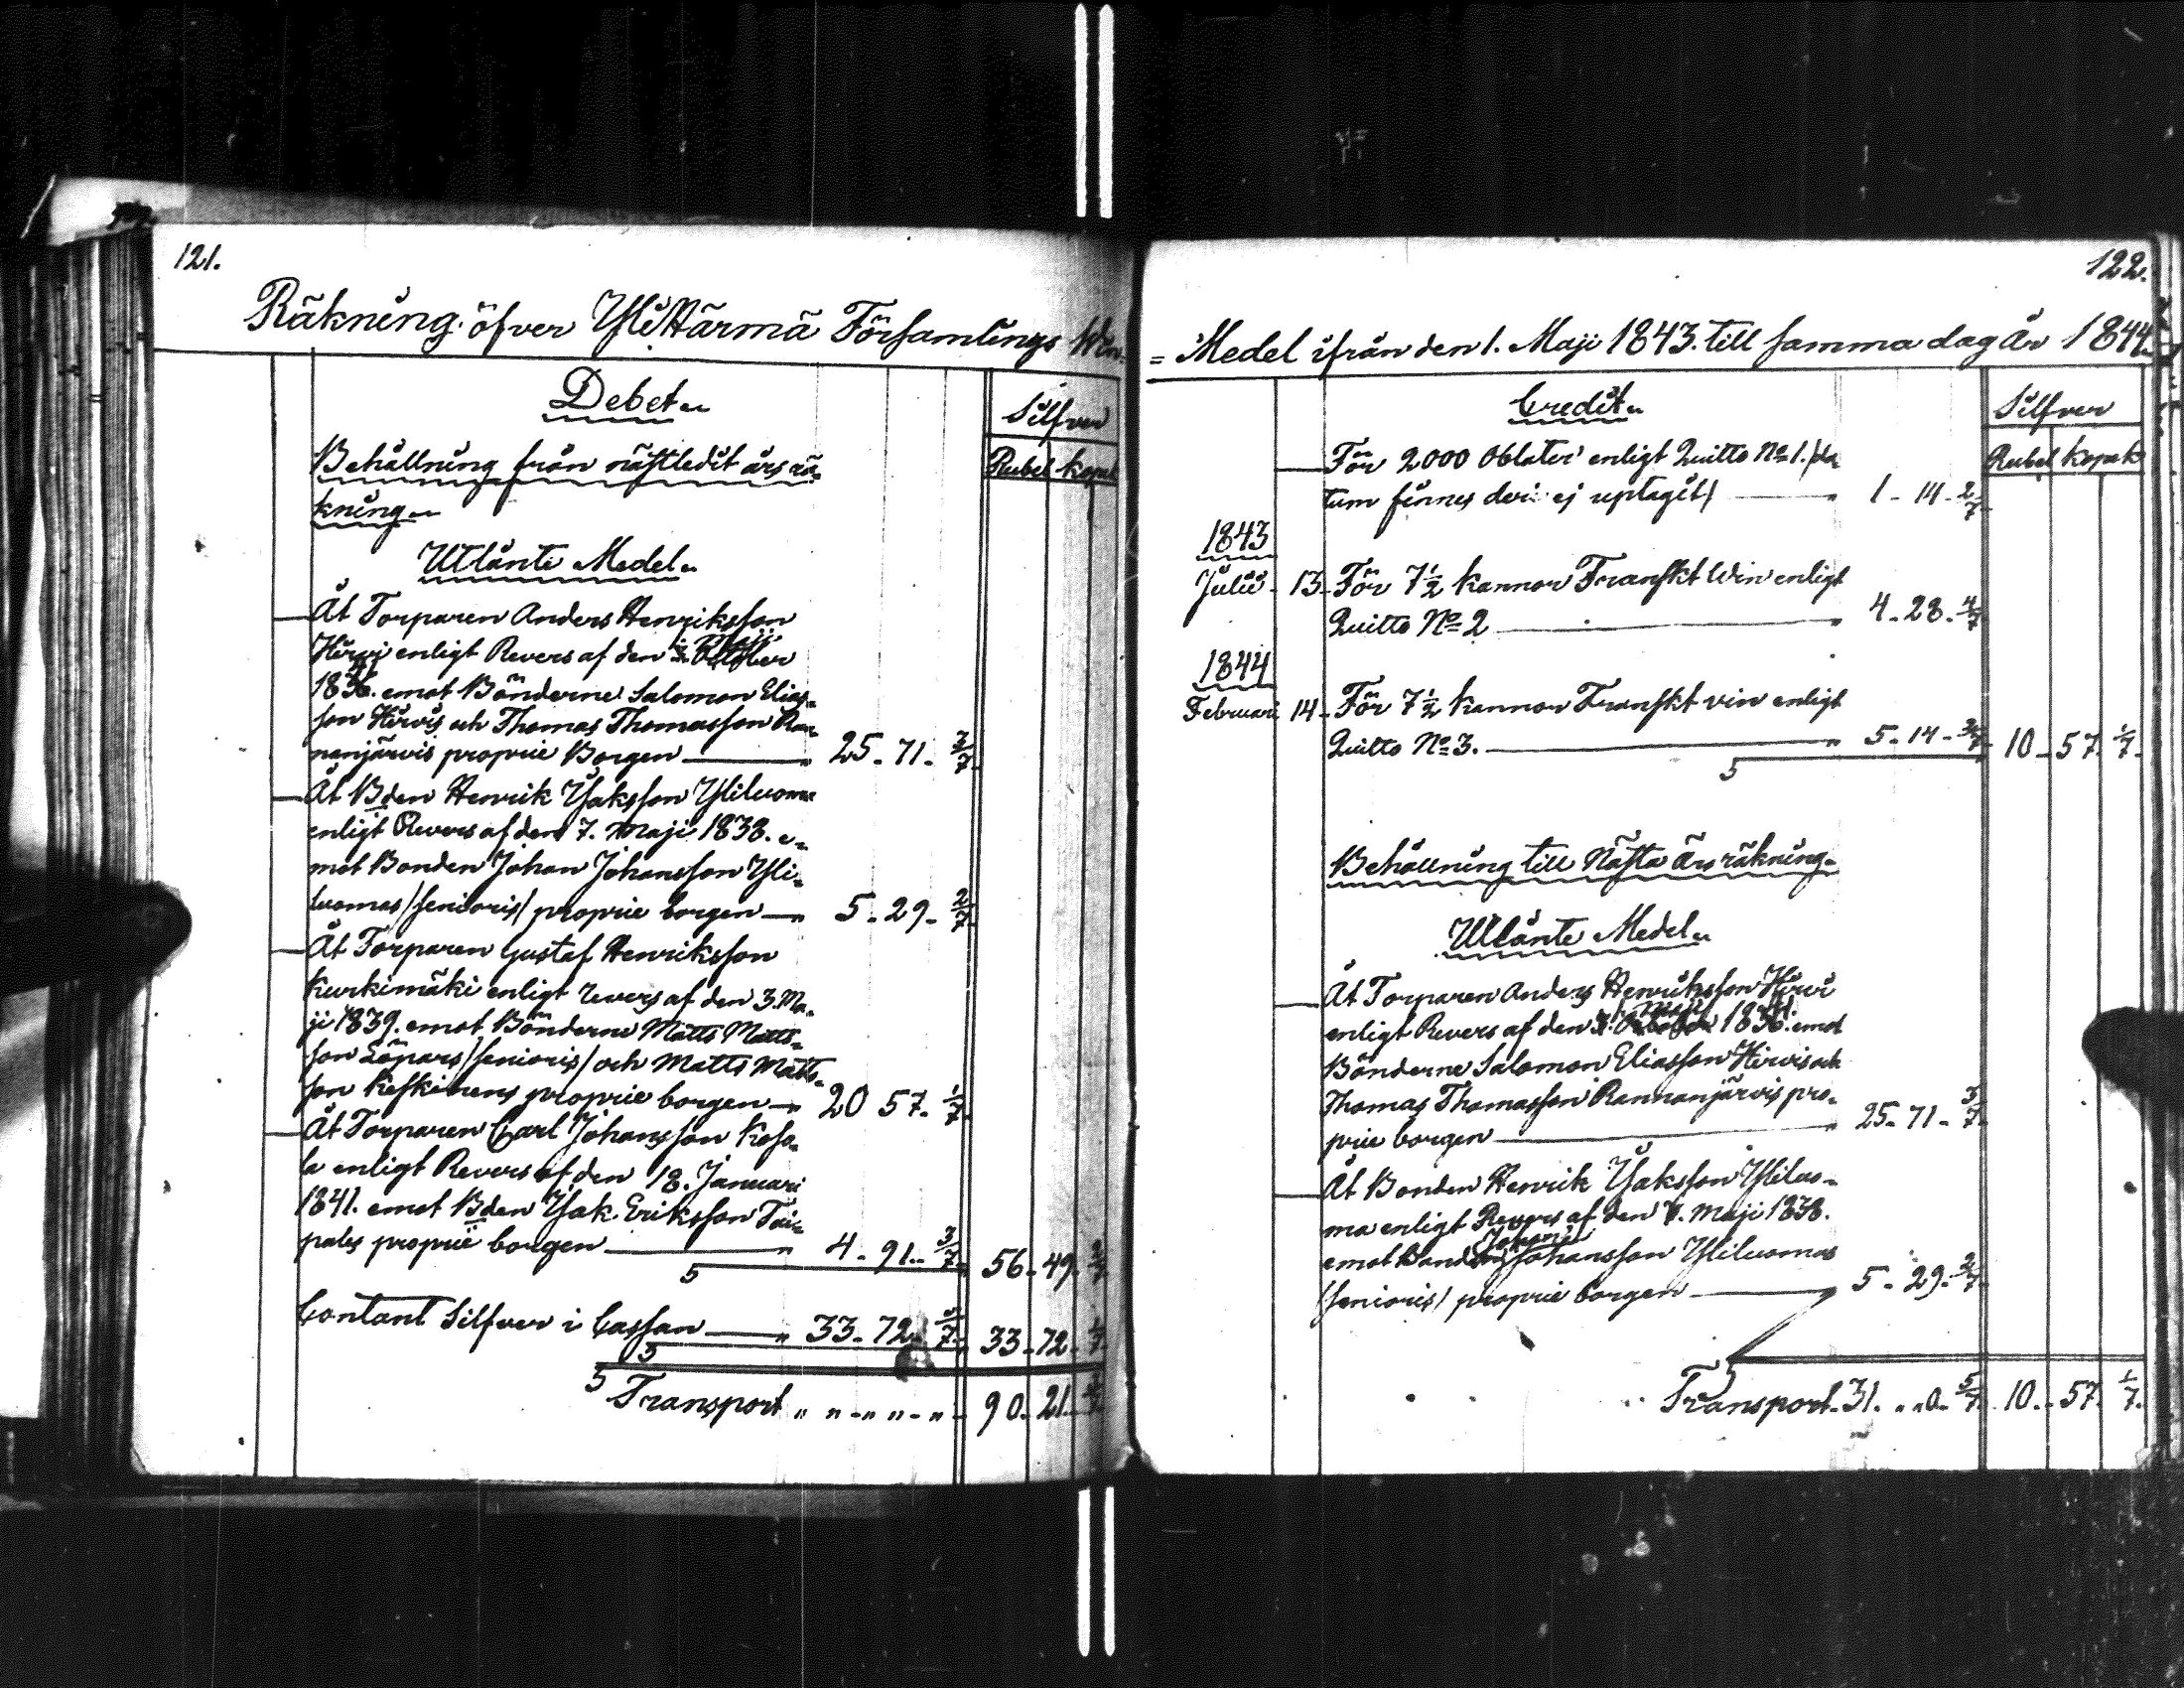 121.
Räkning öfver Yli Härmä Församlings Win-
Debet
Silfver
Rubel kopek
Behållning från nästledit års rä-
kning
Utlånte Medel
Åt Torparen Anders Henriksson
Hirvi enligt Revers af den Maji
183 . emot Bönderne Salomon Elias-
son Hirvis och Thomas Thomasson Ran-
nanjärvis proprie Borgen 25-71-3/7
Åt Bden Henrik Isaksson Yliluoma
enligt Revers af den 7. Maji 1838. e-
mot Bonden Johan Johansson Yli-
luomas /senioris/ proprie borgen 5-29-2/7
Åt Torparen Gustaf Henriksson
Kurkimäki enligt revers af den 3. Ma-
ji 1839. emot Bönderne Matts Matts-
son Löpars /senioris/ och Matts Matts-
son Keskinens proprie borgen 20 57-1/7
Åt Torparen Carl Johansson Koso-
la enligt Revers af den 18. Januari
1841. emot Bden Isak Eriksson Tai-
pales proprie borgen 4-91-3/7 56-49-2/7
Contant Silfver i Cassan 33-72- 33-72-
Transport 90-21-
122.
= Medel ifrån den 1. Maji 1843. till samma dag År 1844
Credit
Silfver
Rubel kopek
För 2000 Oblater enligt Quitto No 1. /da
tum finnes deri ej uptagit/ 1-14-2/7
1843
Julii 13 För 7 1/2 kannor Franskt Win enligt
Quitto No 2 4-28-4/7
1844
Februari 14 För 7 1/2 kannor Franskt vin enligt
Quitto No 3. 5-14-2/7 10-57-1/7
Behållning till Nästa Årsräkning
Utlånte Medel
Åt Torparen Anders Henriksson Hirvi
enligt Revers af den Maji 183 . emot
Bönderne Salomon Eliasson Hirvis och
Thomas Thomasson Rannanjärvis pro-
prie borgen 25-71-3/7
Åt Bonden Henrik Isaksson Yliluo-
ma enligt Revers af den 7. Maji 1838.
emot Bonden Johan Johansson Yliluomas
/senioris/ proprie borgen 5-29-2/7
Transport 31. „0-5/7 10-57 1/7